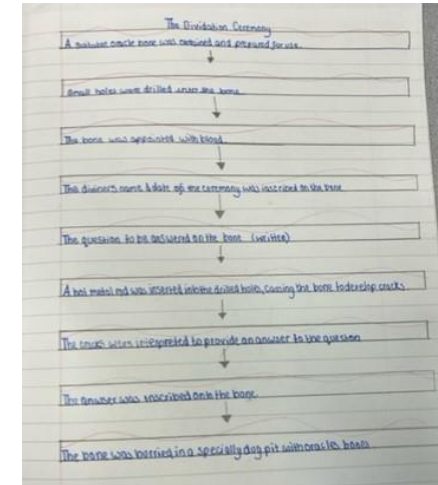 The Dividation Ceremony
A suitable oracle bone was obtained and prepared for use
Small holes were drilled into the bone
The bone was appointed with blood
The diviners name & date of the ceremony was inscribed on the bone
The question to be answered on the bone (written)
A hot metal rod was inserted into the drilled holes, causing the bone to develop cracks
The cracks were interpreted to provide an answer to the question
The answer was inscribed onto the bone
The bone was burried in a specially dug pit with oracles bones